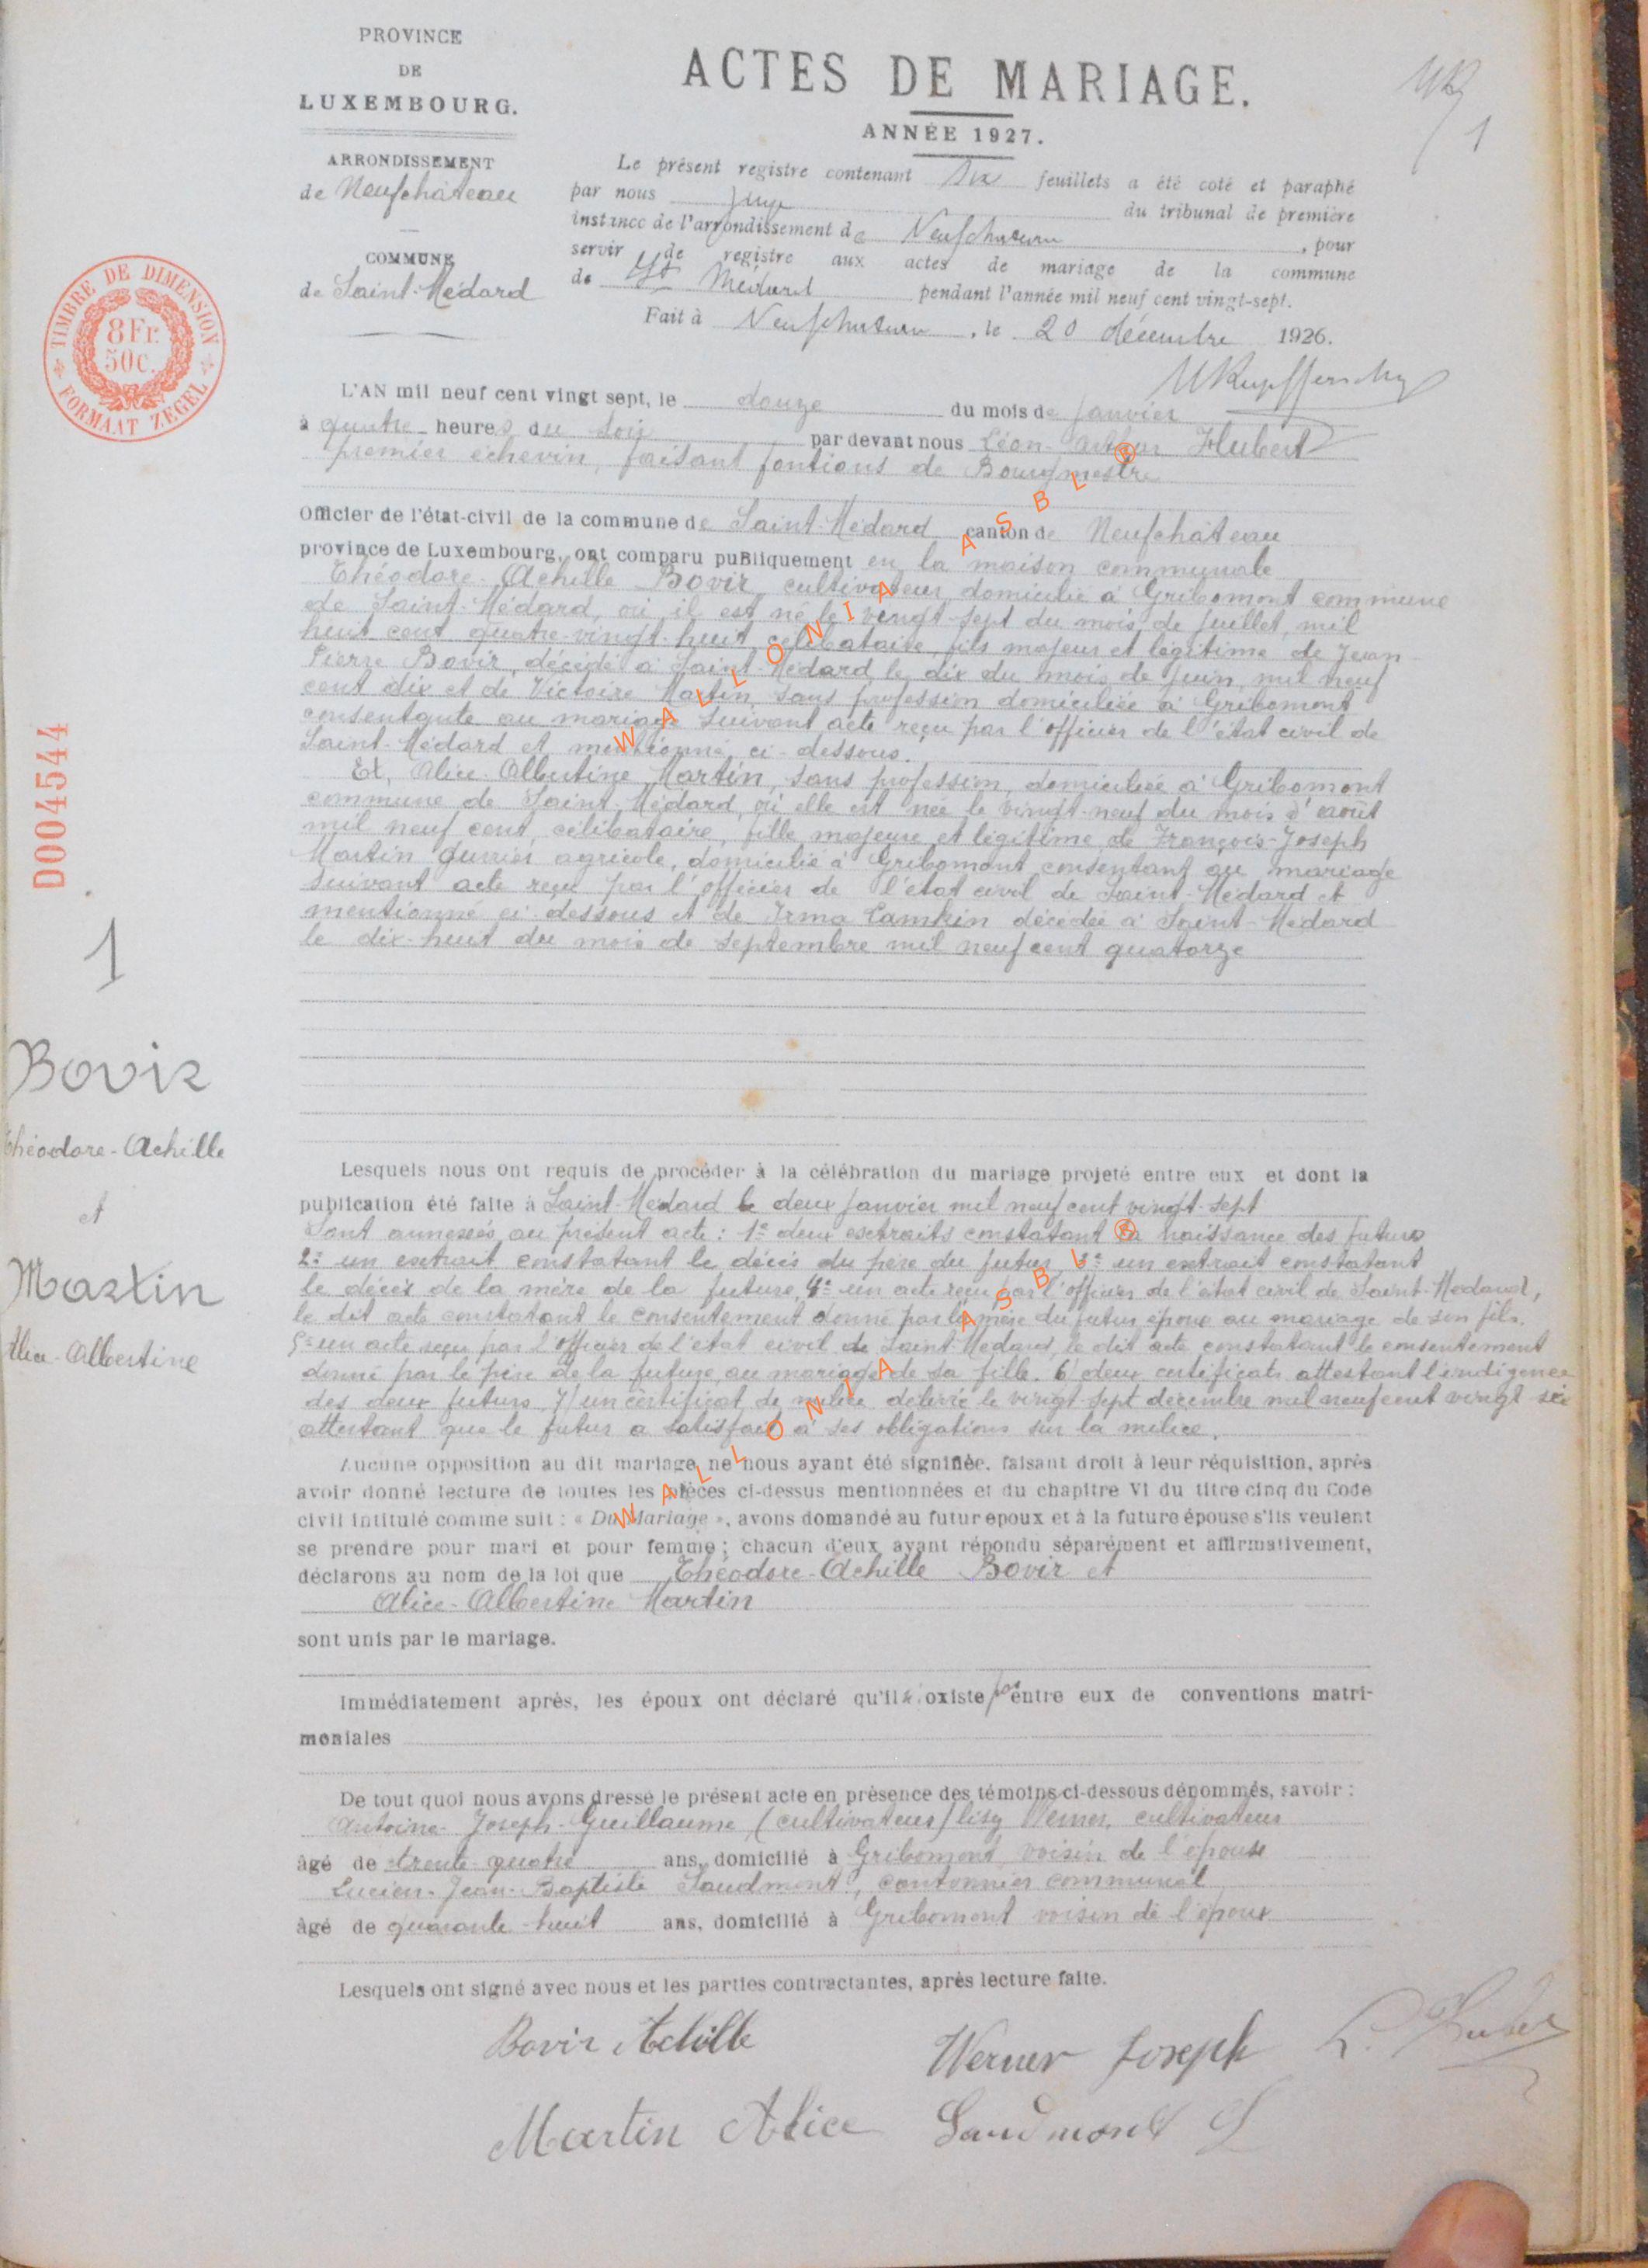 PROVINCE
DE
LUXEMBOURG.
ARRONDISSEMENT
de Neufchâteau
COMMUNE
de Saint-Médard
TIMBRE DE DIMENSION
8Fr.
50c.
FORMAAT ZEGEL
ACTES DE MARIAGE.
1
ANNÉE 1927.
Le présent registre contenant six feuillets a été coté et paraphé
par nous Juge du tribunal de première
instance de l'arrondissement de Neufchateau, pour
servir de registre aux actes de mariage de la commune
de St Médard pendant l'année mil neuf cent vingt-sept.
Fait à Neufchateau, le 20 décembre 1926.
L'AN mil neuf cent vingt sept, le douze du mois de janvier
à quatre heures du soir par devant nous Léon-Arthur Hubert
premier échevin, faisant fontions de Bourgmestre
Officier de l'état-civil de la commune de Saint-Médard canton de Neufchâteau
province de Luxembourg, ont comparu publiquement en la maison communale
Théodore-Achille Bovir, cultivateur, domicilié à Gribomont commune
de Saint-Médard, où il est né le vingt-sept du mois de juillet, mil
huit cent quatre-vingt-huit, célibataire, fils majeur et légitime de Jean-
Pierre Bovir, décédé à Saint-Médard, le dix du mois de juin, mil neuf
cent dix et de Victoire Martin, sans profession domiciliée à Gribomont
consentante au mariage suivant acte reçu par l'officier de l'état civil de
Saint-Médard et mentionné ci-dessous.
Et, Alice-Albertine Martin, sans profession, domiciliée à Gribomont
commune de Saint-Médard, où elle est née le vingt-neuf du mois d'août
mil neuf cent, célibataire, fille majeure et légitime de François-Joseph
Martin ouvrier agricole, domicilié à Gribomont consentant au mariage
suivant acte reçu par l'officier de l'état civil de Saint-Médard et
mentionné ci-dessous et de Irma Camkin décédée à Saint-Médard
le dix-huit du mois de septembre mil neuf cent quatorze
D004544
1
Bovir
Théodore-Achille
et
Martin
Alice-Albertine
Lesquels nous ont requis de procéder à la célébration du mariage projeté entre eux et dont la
publication été faite à Saint-Médard le deux janvier mil neuf cent vingt-sept
Sont annexés au présent acte : 1º deux extraits constatant la naissance des futurs
2º un extrait constatant le décès du père du futur, 3º un extrait constatant
le décès de la mère de la future, 4º un acte reçu par l'officier de l'état civil de Saint-Médard,
le dit acte constatant le consentement donné par la mère du futur époux au mariage de son fils.
5º un acte reçu par l'officier de l'état civil de Saint-Médard, le dit acte constatant le consentement
donné par le père de la future au mariage de sa fille. 6/ deux certificats attestant l'indigence
des deux futurs 7/ un certificat de milice délivré le vingt-sept décembre mil neuf cent vingt six
attestant que le futur a satisfait à ses obligations sur la milice.
Aucune opposition au dit mariage ne nous ayant été signifiée, faisant droit à leur réquisition, après
avoir donné lecture de toutes les pièces ci-dessus mentionnées et du chapitre VI du titre cinq du Code
civil intitulé comme suit : « Du Mariage », avons domandé au futur époux et à la future épouse s'ils veulent
se prendre pour mari et pour femme ; chacun d'eux ayant répondu séparément et affirmativement,
déclarons au nom de la loi que Théodore-Achille Bovir et
Alice-Albertine Martin
sont unis par le mariage.
Immédiatement après, les époux ont déclaré qu'il n'existe pas entre eux de conventions matri-
moniales
De tout quoi nous avons dressé le présent acte en présence des témoins ci-dessous dénommés, savoir :
Antoine-Joseph-Guillaume (cultivateur) lisez Werner, cultivateur
âgé de trente-quatre ans, domicilié à Gribomont voisin de l'épouse
Lucien-Jean-Baptiste Saudmont, cantonnier communal
âgé de quarante-huit ans, domicilié à Gribomont voisin de l'époux
Lesquels ont signé avec nous et les parties contractantes, après lecture faite.
Bovir Achille
Werner Joseph
L. Hubert
Martin Alice
Saudmont L
WALLONIA ASBL ®
WALLONIA ASBL ®